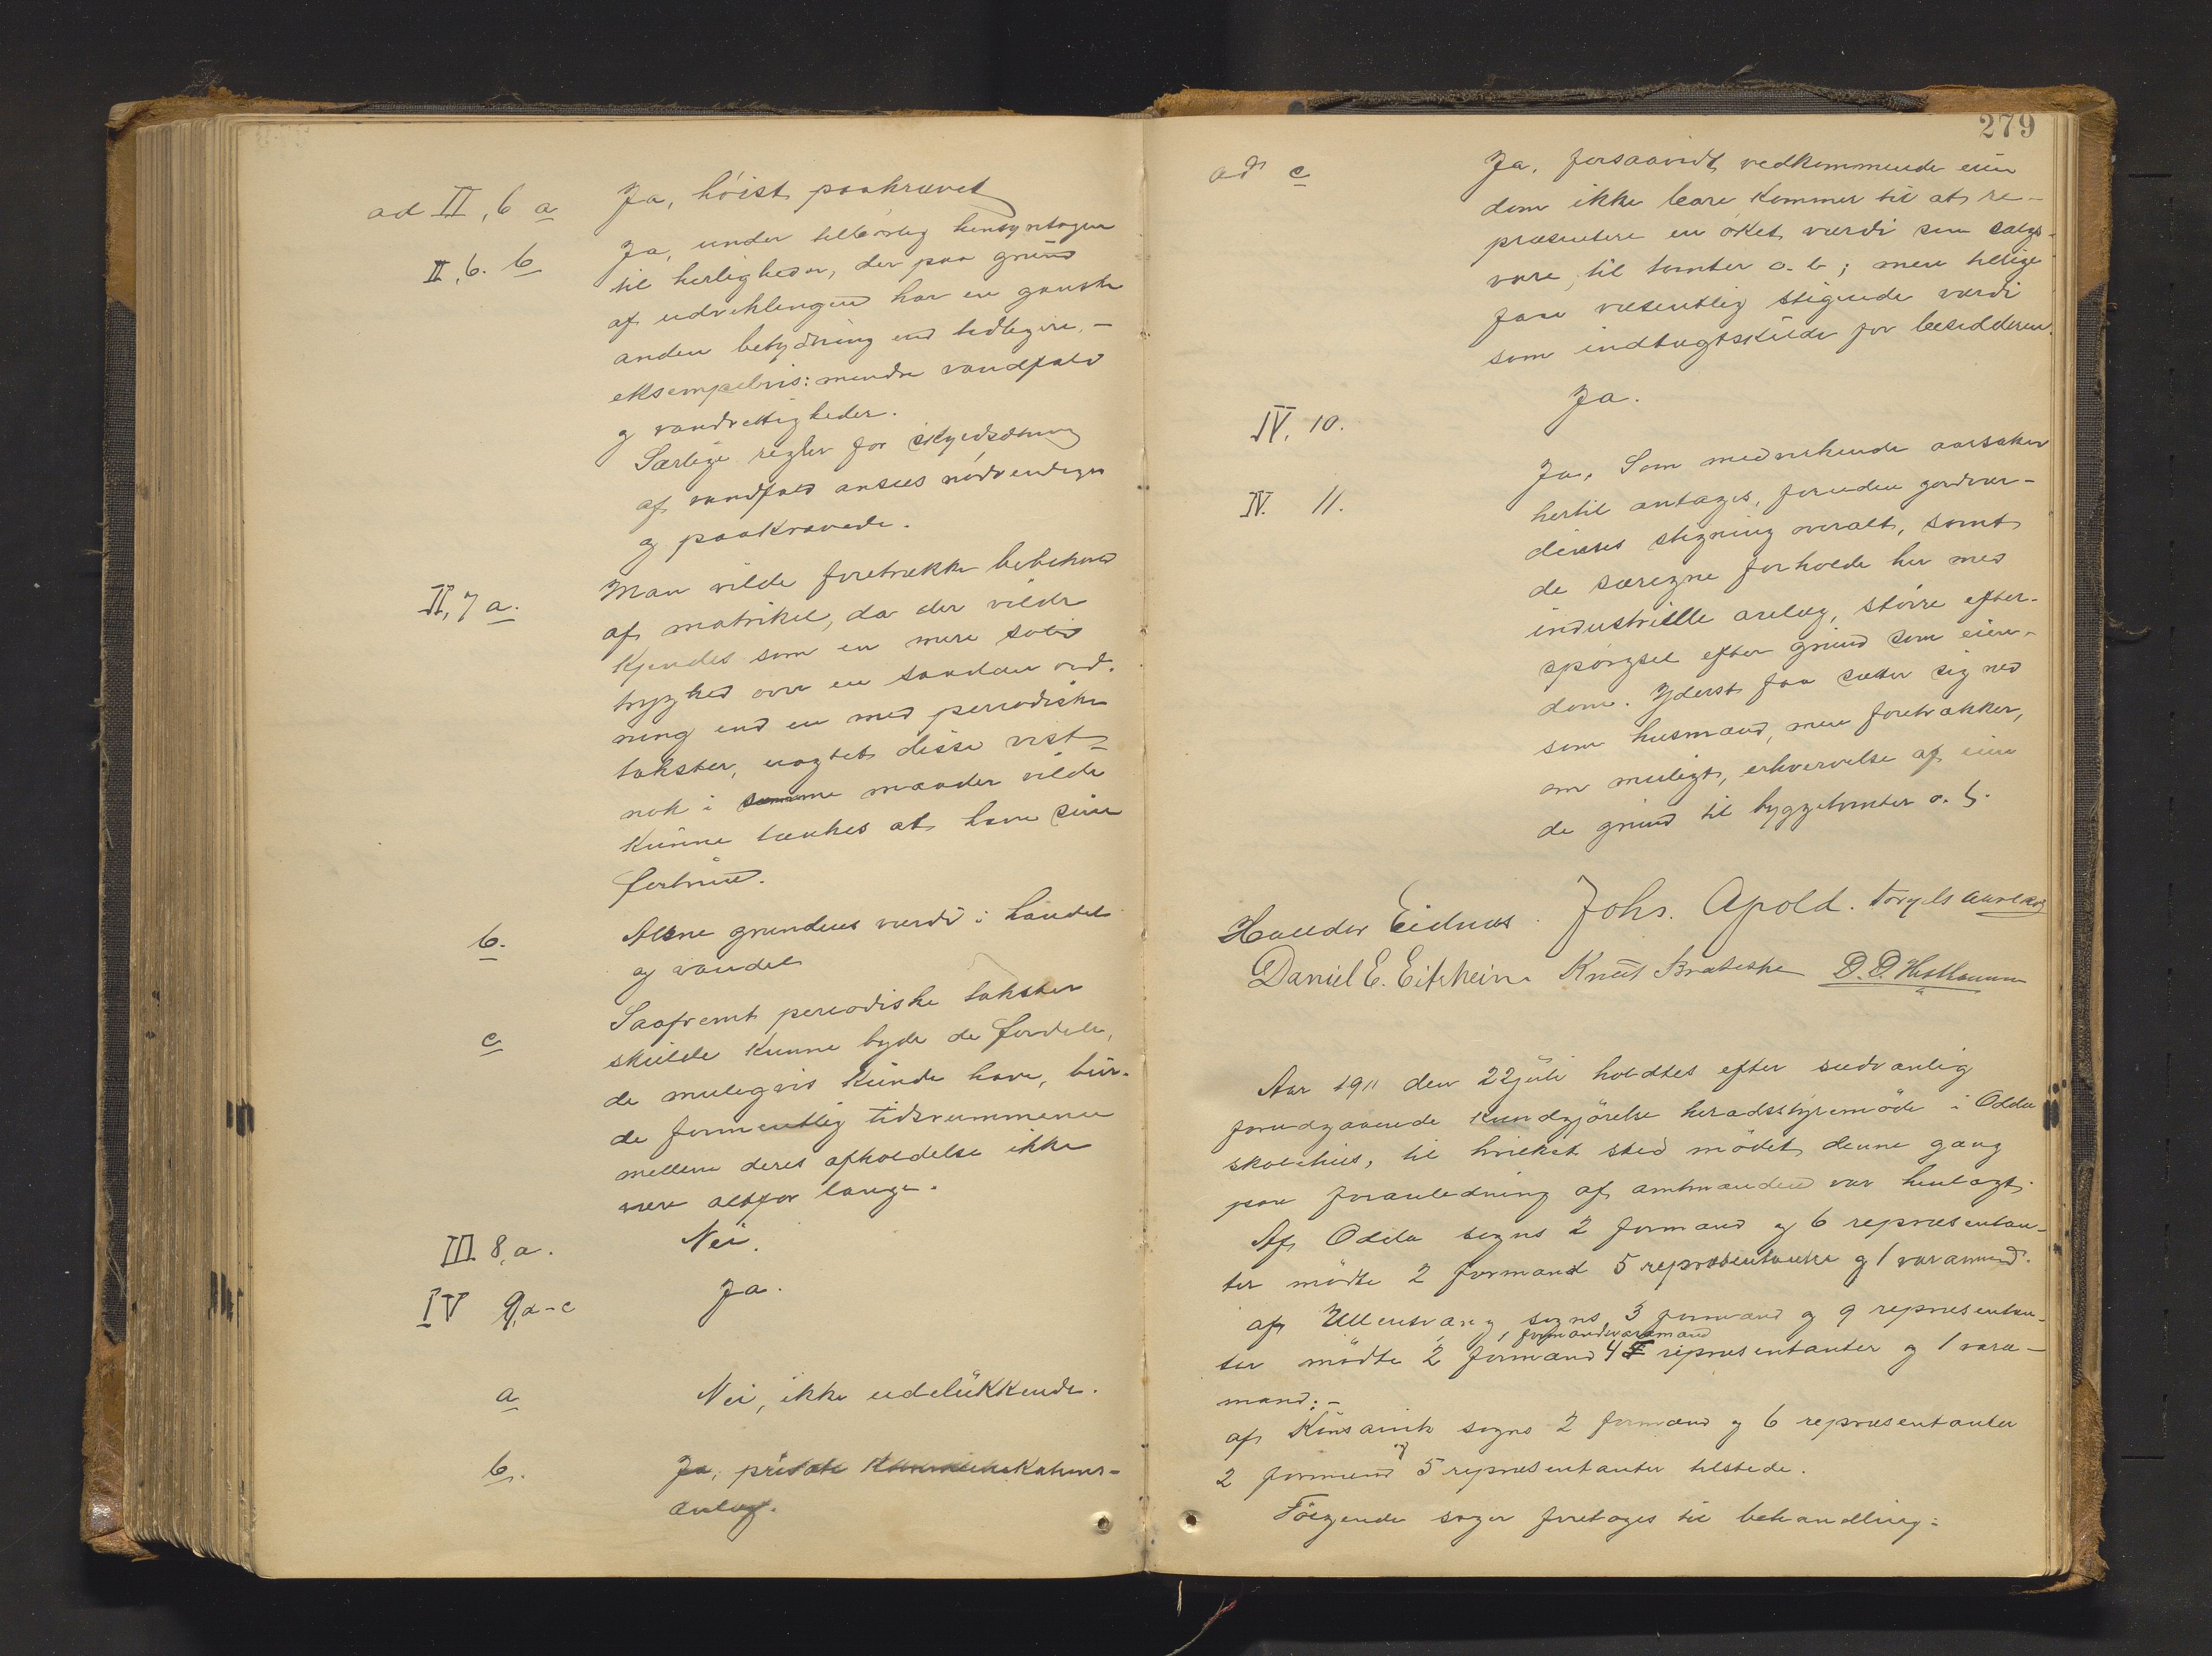 ad II, 6 a Ja, høist paakrævet
II, 6. b Ja, under tilbørlig hensyntagen
til herligheder, der paa grund
af udviklingen har en ganske
anden betydning end tidligere, –
eksempelvis: mindre vandfald
og vandrettigheder.
Særlige regler for skyldsætning
af vandfald ansees nødvendige
og paakrævede.
II, 7 a. Man vilde foretrække bibehold
af matrikel, da der vilde
kjendes som en mere solid
tryghed over en saadan ord-
ning end en med periodiske
takster, uagtet disse vist-
nok i somme maader vilde
kunne tænkes at have sine
fortrin.
b. Alene grundens værdi i handel
og vandel
c Saafremt periodiske takster
skulde kunne byde de fordele,
de muligvis kunde have, bur-
de formentlig tidsrummene
mellem deres afholdelse ikke
være altfor lange.
III. 8, a. Nei.
IV 9, a-c Ja.
a Nei, ikke udelukkende.
b. Ja, private
anlæg.
279
ad c Ja, forsaavidt vedkommende eien
dom ikke bare kommer til at re-
præsentere en øket værdi som salgs-
vare, til tomter o. l.; men tillige
faar væsentlig stigende værdi
som indtægtskilde for besidderen.
IV. 10. Ja.
IV. 11. Ja. Som medvirkende aarsaker
hertil antages, foruden jordvær-
diens stigning overalt, samt
de særegne forholde her med
industrielle anlæg, større efter-
spørgsel efter grund som eien-
dom. Yderst faa sætter sig ned
som husmænd, men foretrækker,
om muligt, erhvervelse af eien
de grund til byggetomter o. l.
Halldor Eidnes. Johs. Apold.
Daniel E. Eitrheim Knut Bråteske
Aar 1911 den 22 juli holdtes efter sedvanlig
forudgaaende kundgjørelse heradsstyremøde i Odda
skolehus, til hvilket sted mødet denne gang
paa foranledning af amtmanden var henlagt.
Af Odda sogns 2 formænd og 6 repræsentan-
ter mødte 2 formænd 5 repræsentanter og 1 varamand.
af Ullensvang sogns 3 formænd og 9 repræsentan-
1 formandsvaramand
ter mødte 2 formænd 4 repræsentanter og 1 vara-
mand; –
af Kinsarvik sogns 2 formænd og 6 repræsentanter
og
2 formænd 5 repræsentanter tilstede.
Følgende sager foretages til behandling: